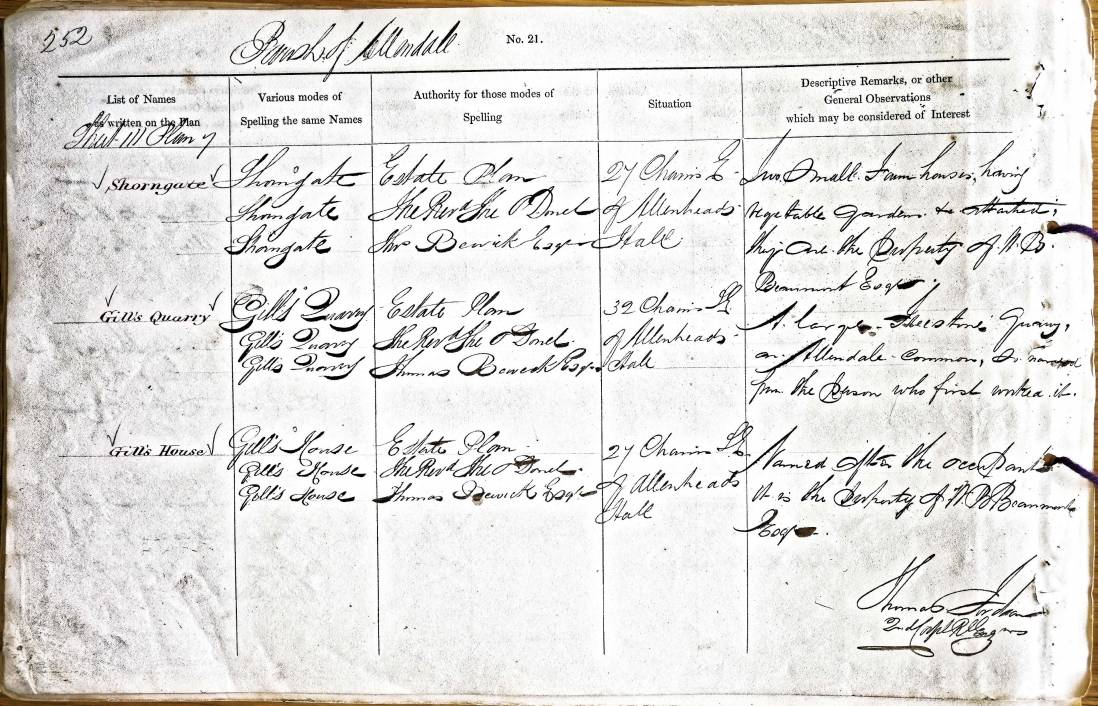 252
Parish of Allendale
No. 21.
List of Names
as written on the Plan
Various modes of
Spelling the same Names
Authority for those modes of
Spelling
Situation
Descriptive Remarks, or other
General Observations
which may be considered of Interest
Sheet 111 Plan 7
Shorngate
Shorngate
Shorngate
Shorngate
Estate Plan
The Revd The O'Donel
Thos Bewick Esqr
27 Chains E
of Allenheads
Hall
Two Small Farm houses, having
vegetable gardens &c attached;
they are the Property of W. B.
Beaumont Esqr
Gill's Quarry
Gill's Quarry
Gill's Quarry
Gill's Quarry
Estate Plan
The Revd The O'Donel
Thomas Bewick Esqr
32 Chains S.E.
of Allenheads
Hall
A large Freestone Quarry,
on Allendale Common, So named
from the Person who first worked it.
Gill's House
Gill's House
Gill's House
Gill's House
Estate Plan
The Revd The O'Donel
Thomas Bewick Esqr
27 Chains S.E.
of Allenheads
Hall
Named after the occupant
it is the Property of W. B. Beaumont
Esqr.
Thomas Jordan
2nd Corpl R. Engrs